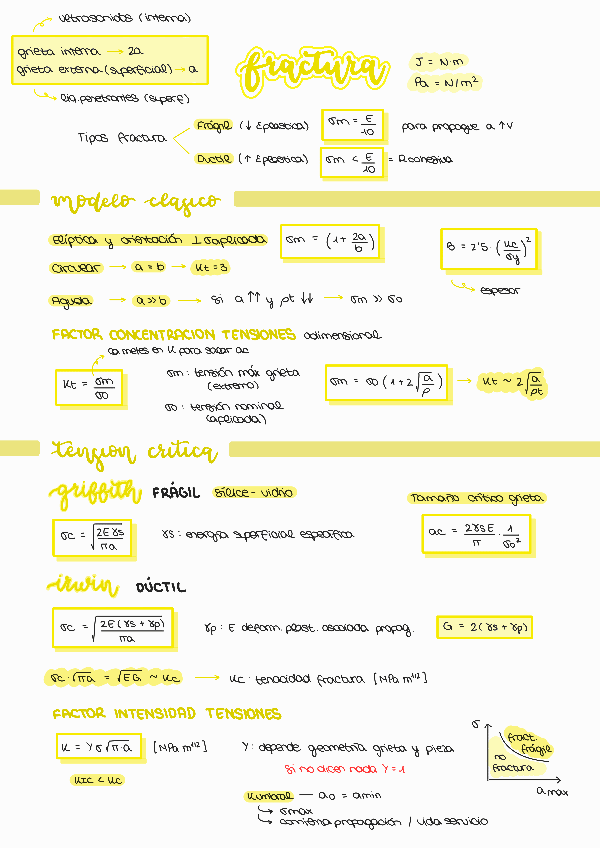 ultrasonidos (interna)
grieta interna → 2a
grieta externa (superficial) → a
liq. penetrantes (superf)
fractura
J = N·m
Pa = N/m²
Tipos fractura
Frágil (↓ εplastica) σm = E/10 para propague a ↑v
Ductil (↑ εplastica) σm < E/10 = R cohesiva
modelo clásico
Elíptica y orientación ⊥ σaplicada σm = (1 + 2a/b)
B = 2'5 · (Kc/σy)²
espesor
Circular → a = b → Kt = 3
Aguda → a >> b → si a ↑↑ y ρt ↓↓ → σm >> σo
FACTOR CONCENTRACION TENSIONES adimensional
la metes en K para sacar ac
Kt = σm/σo
σm : tensión máx grieta
(extremo)
σo : tensión nominal
(aplicada)
σm = σo (1 + 2√(a/ρ)) → Kt ~ 2√(a/ρt)
tension critica
griffith FRÁGIL sílice - vidrio
Tamaño crítico grieta
σc = √(2Eγs/πa)
γs : energía superficial específica
ac = 2γsE/π · 1/σo²
irwin DÚCTIL
σc = √(2E(γs + γp)/πa)
γp : E deform. plast. asociada propag.
G = 2(γs + γp)
σc·√πa = √EG ~ Kc → Kc · tenacidad fractura [MPa m^1/2]
FACTOR INTENSIDAD TENSIONES
K = Yσ√π·a [MPa m^1/2]
Y : depende geometría grieta y pieza
Si no dicen nada Y = 1
KIC < KC
Kumbral — ao = amin
σmax
comienza propagación / vida servicio
σ
fract.
frágil
no
fractura
a max